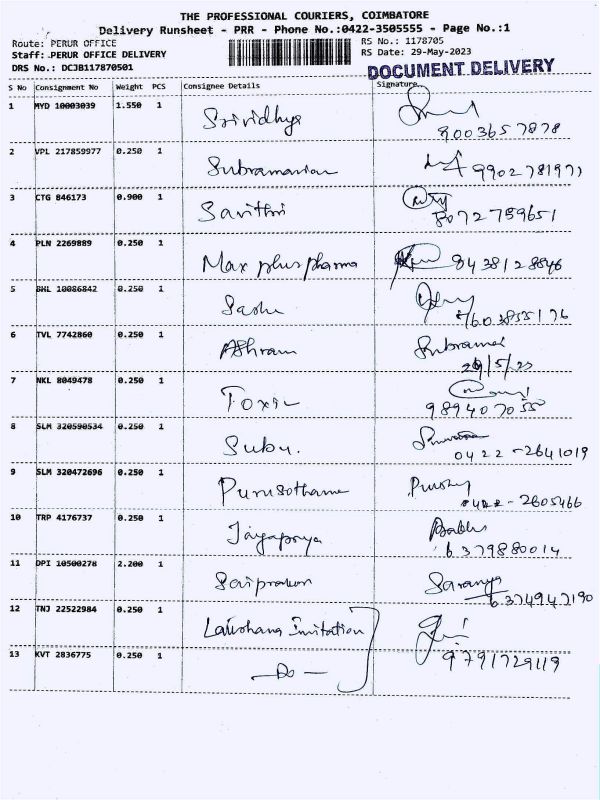 THE PROFESSIONAL COURIERS, COIMBATORE
Delivery Runsheet - PRR - Phone No.:0422-3505555 - Page No.:1
Route: PERUR OFFICE RS No.: 1178705
Staff: PERUR OFFICE DELIVERY RS Date: 29-May-2023
DRS No.: DCJB117870501 DOCUMENT DELIVERY
S No Consignment No Weight PCS Consignee Details Signature
1 MYD 10003039 1.550 1 Srividhya
9003657878
2 VPL 217859977 0.250 1 Subramanian 9902781971
3 CTG 846173 0.900 1 Savithri
8072759651
4 PLN 2269889 0.250 1 Max plus pharma 8438128846
5 BHL 10086842 0.250 1
7603855176
6 TVL 7742860 0.250 1 Ashram
29/5/23
7 NKL 8049478 0.250 1
9894070550
8 SLM 320590534 0.250 1 Subu.
0422-2641019
9 SLM 320472696 0.250 1 Purusothama
0422-2605466
10 TRP 4176737 0.250 1 Jayapriya
6379880014
11 DPI 10500278 2.200 1 Saranya
6374947190
12 TNJ 22522984 0.250 1 Invitation
13 KVT 2836775 0.250 1 —Do— 9791729119